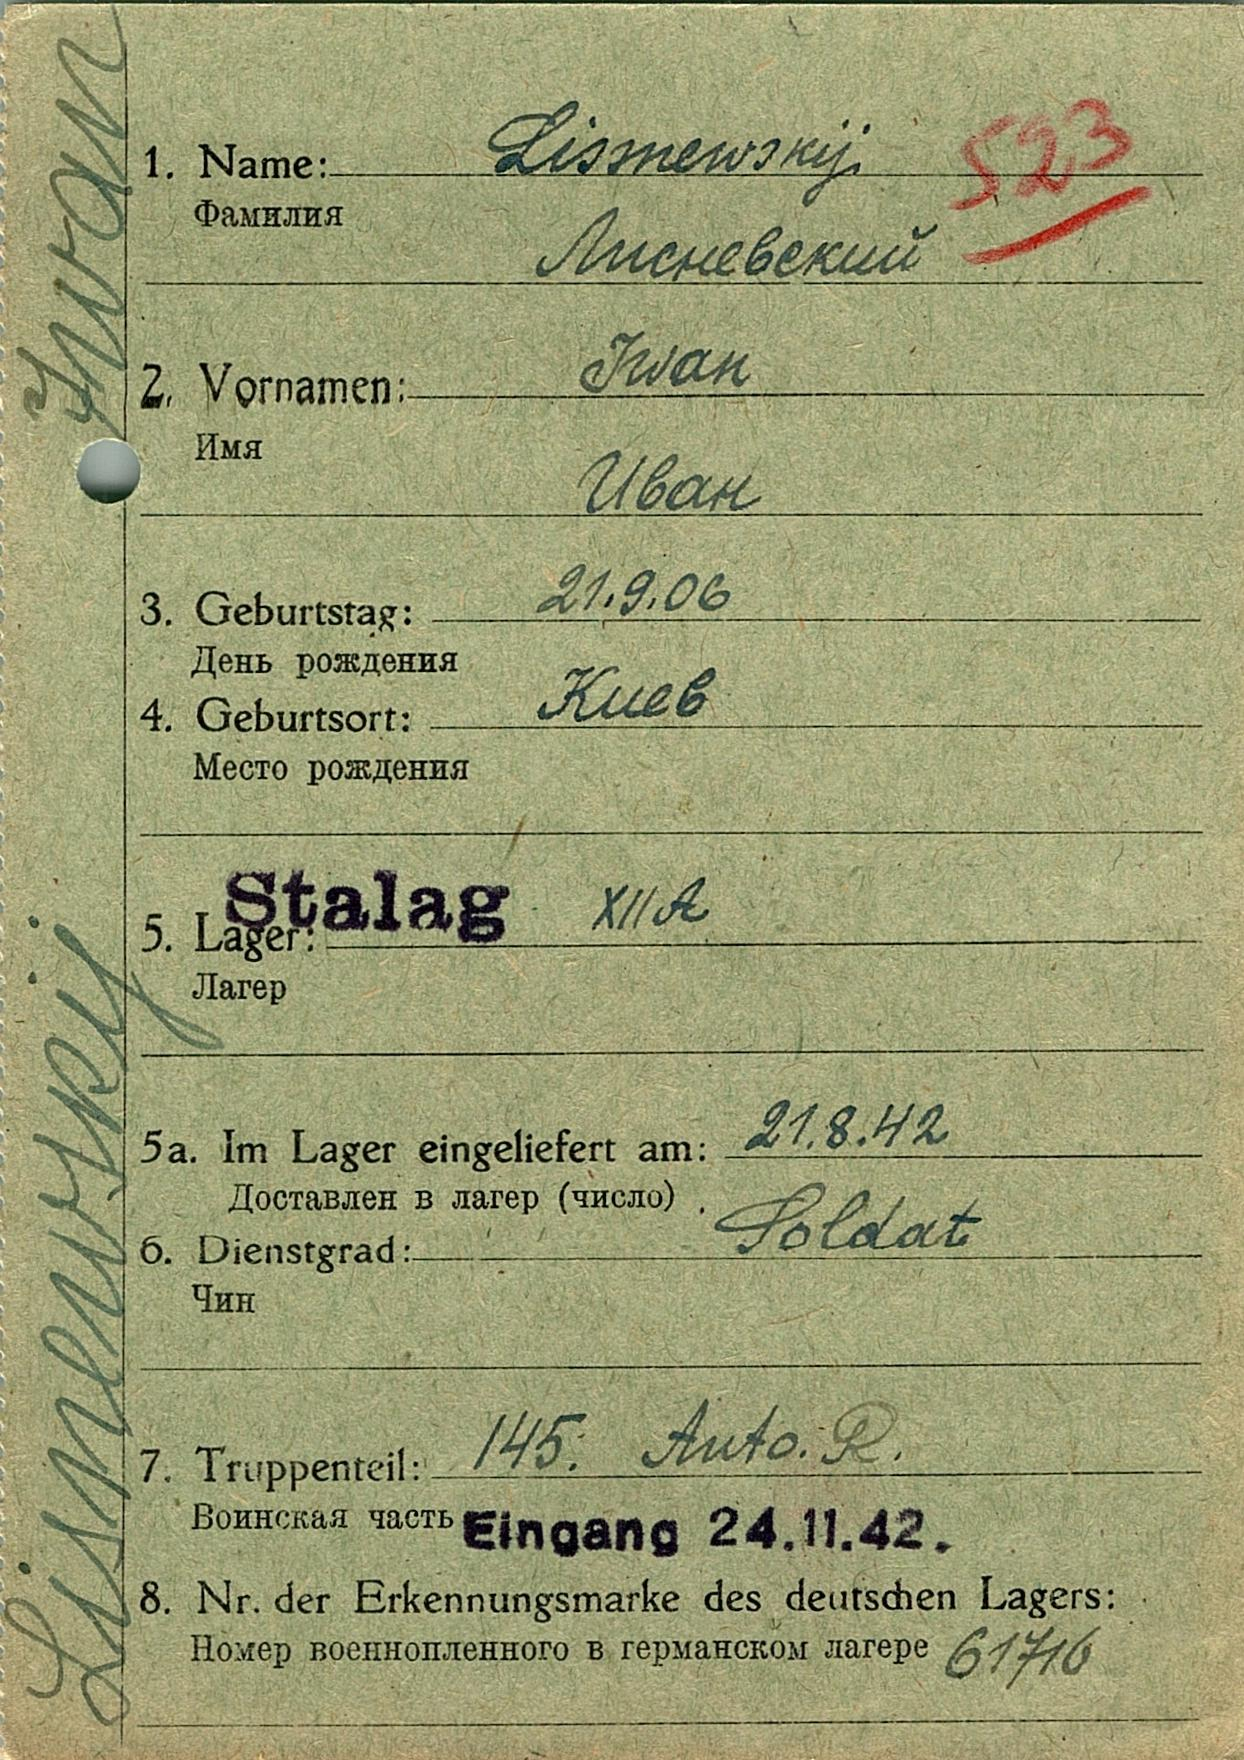 Lismewskij Iwan
1. Name: Lismewskij 523
Фамилия
Лисневский
2. Vornamen: Iwan
Имя
Иван
3. Geburtstag: 21.9.06
День рождения
4. Geburtsort: Киев
Место рождения
Stalag XII A
5. Lager:
Лагер
5a. Im Lager eingeliefert am: 21.8.42
Доставлен в лагер (число)
6. Dienstgrad: Soldat
Чин
7. Truppenteil: 145. Auto. R.
Воинская часть Eingang 24.11.42.
8. Nr. der Erkennungsmarke des deutschen Lagers:
Номер военнопленного в германском лагере 61716